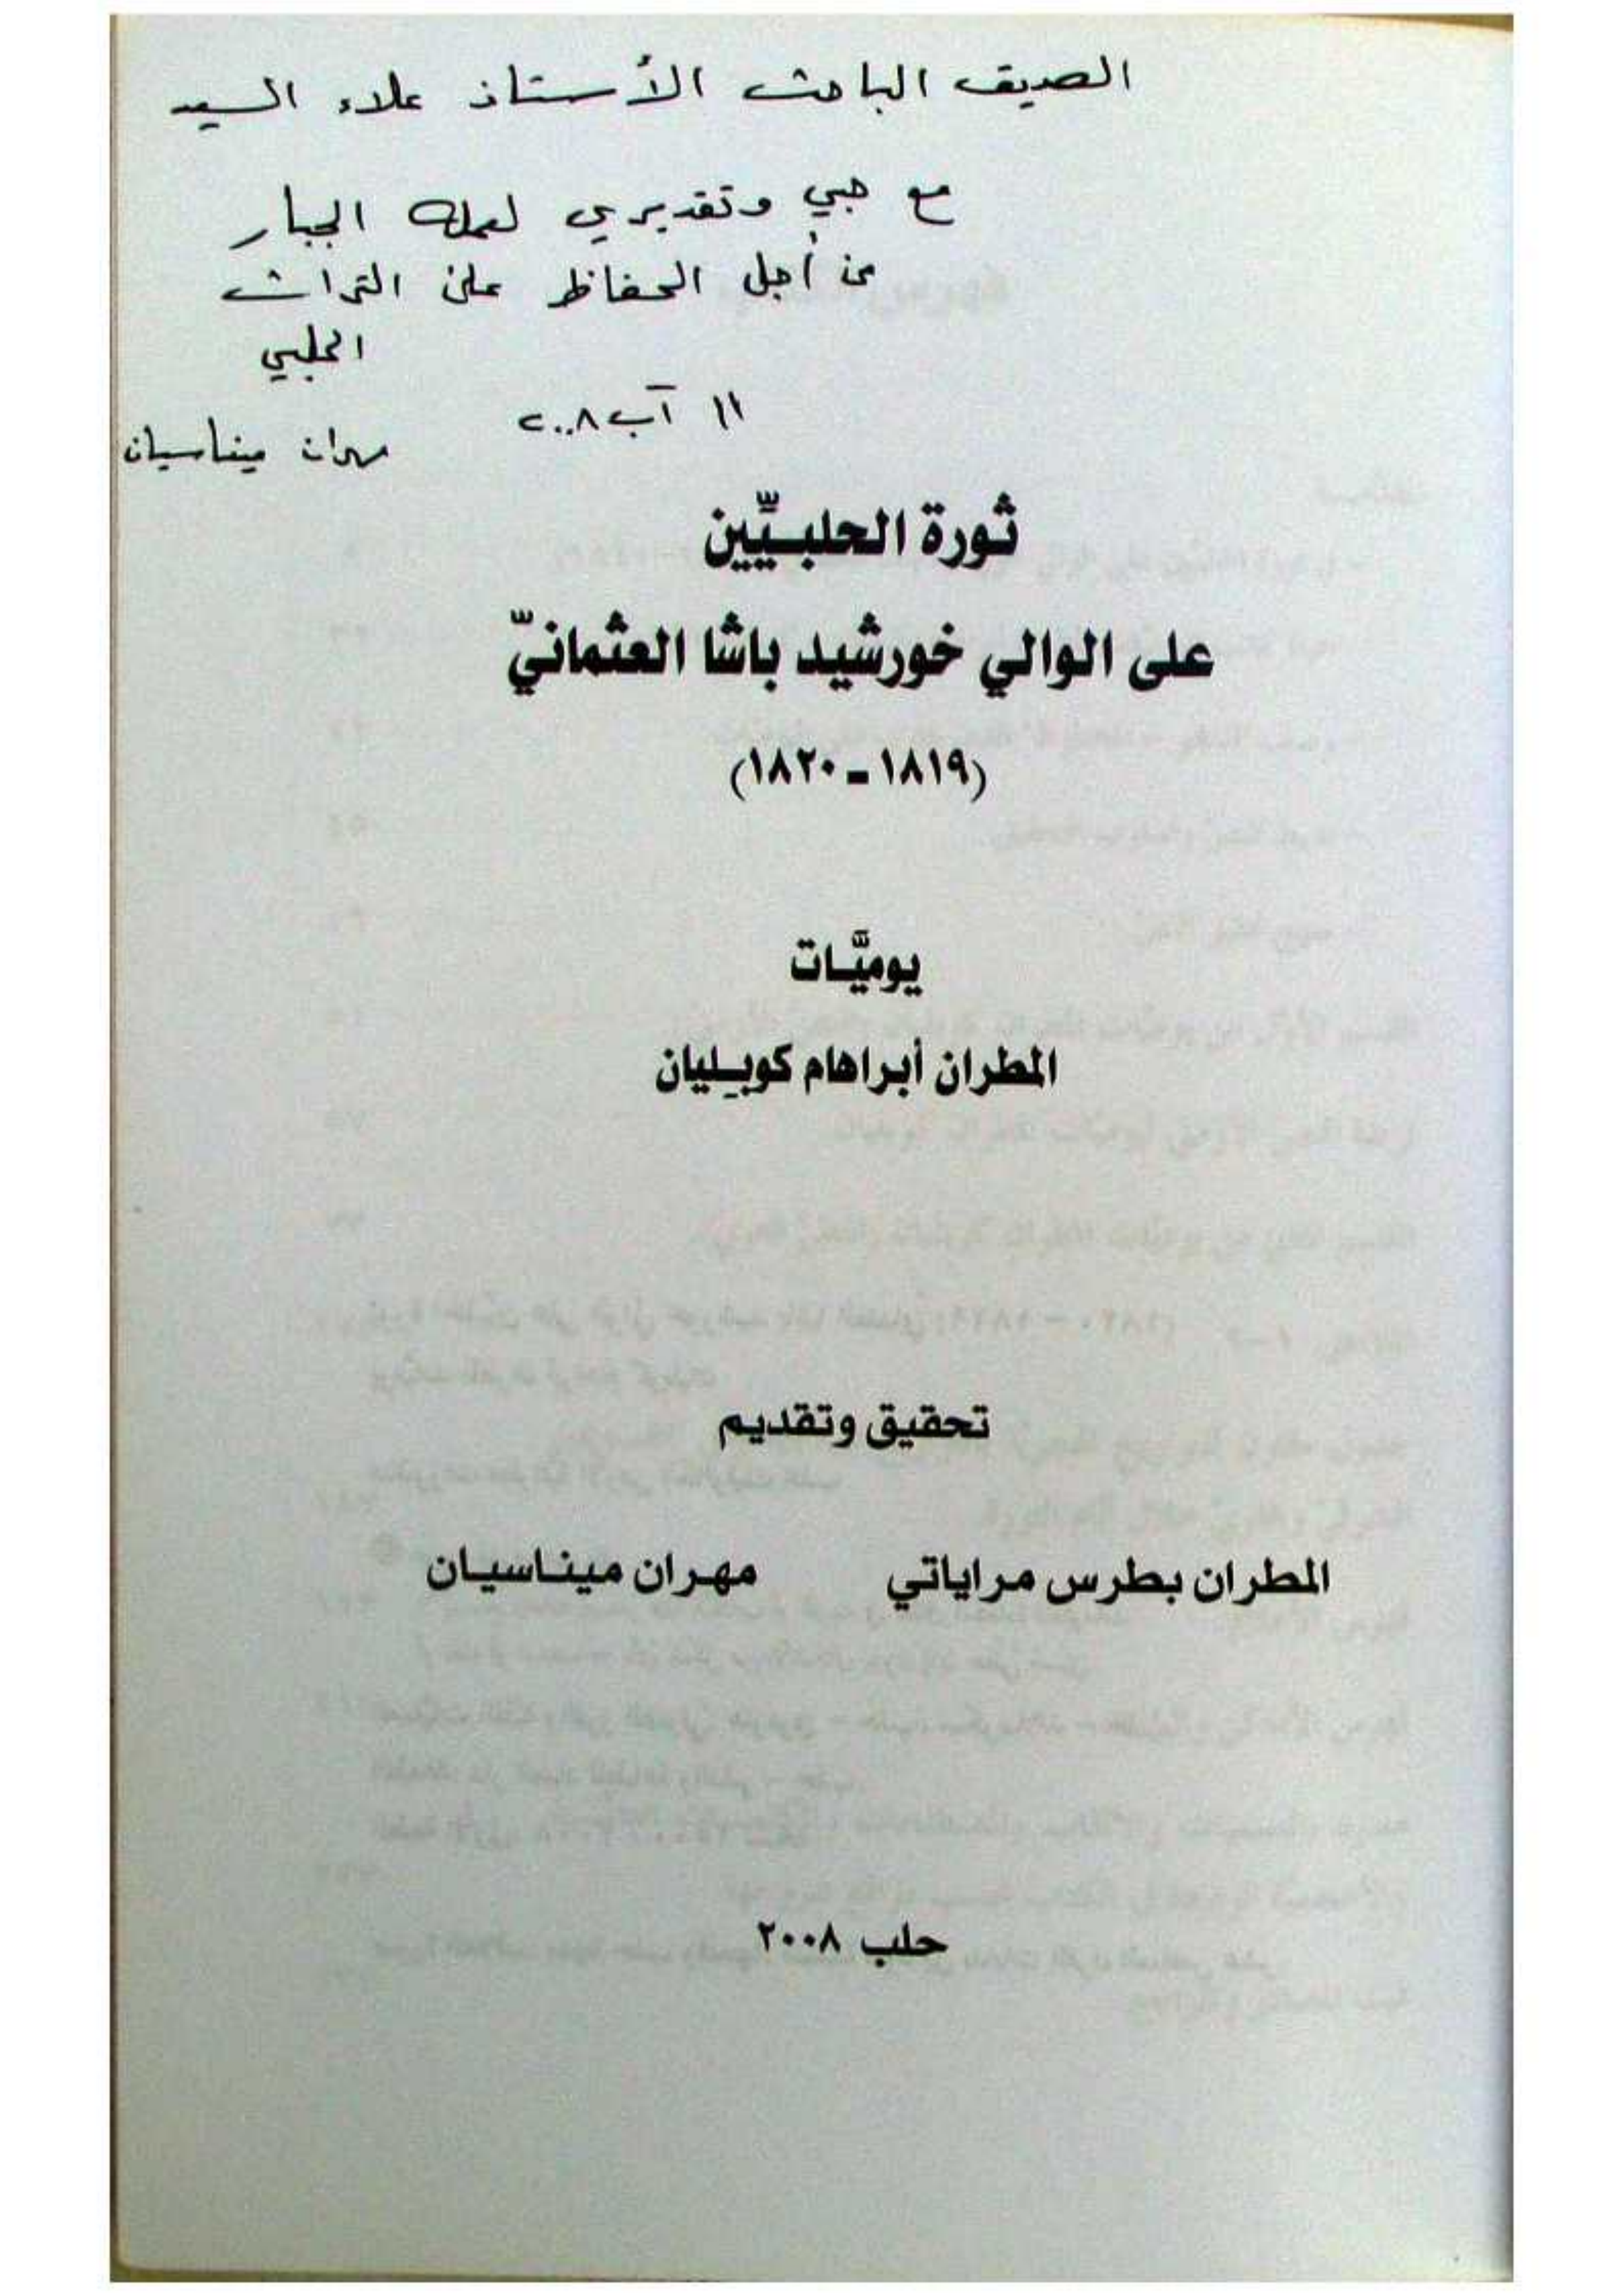 الصديق الباحث الأستاذ علاء السيد
مع حبي وتقديري لعمله الجبار
من أجل الحفاظ على التراث
الحلبي
١١ آب ٢٠٠٨
مهران ميناسيان
ثورة الحلبيّين
على الوالي خورشيد باشا العثمانيّ
(١٨١٩ - ١٨٢٠)
يوميَّات
المطران أبراهام كوبليان
تحقيق وتقديم
المطران بطرس مراياتي مهران ميناسيان
حلب ٢٠٠٨